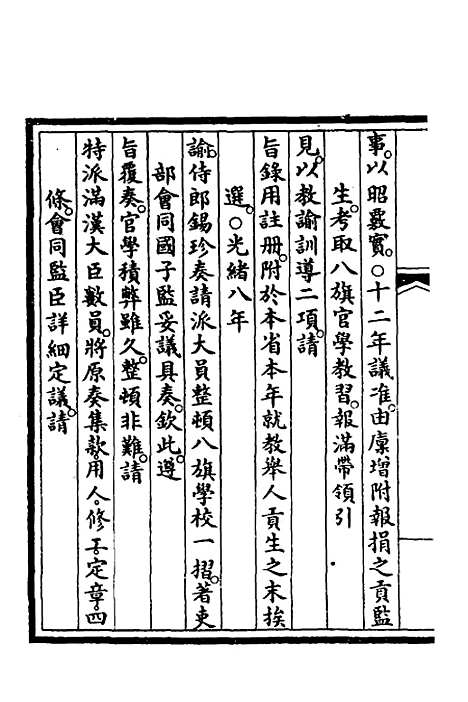 事。以昭覈實。○十二年議准。由廩增附報捐之貢監
生。考取八旗官學教習。報滿帶領引
見。以教諭訓導二項。請
旨錄用註冊。附於本省本年就教舉人貢生之末挨
選。○光緒八年
諭。侍郎錫珍奏請派大員整頓八旗學校一摺。著吏
部會同國子監妥議具奏。欽此。遵
旨覆奏。官學積弊雖久。整頓非難。請
特派滿漢大臣數員。將原奏集款。用人。修工定章。四
條。會同監臣詳細定議。請